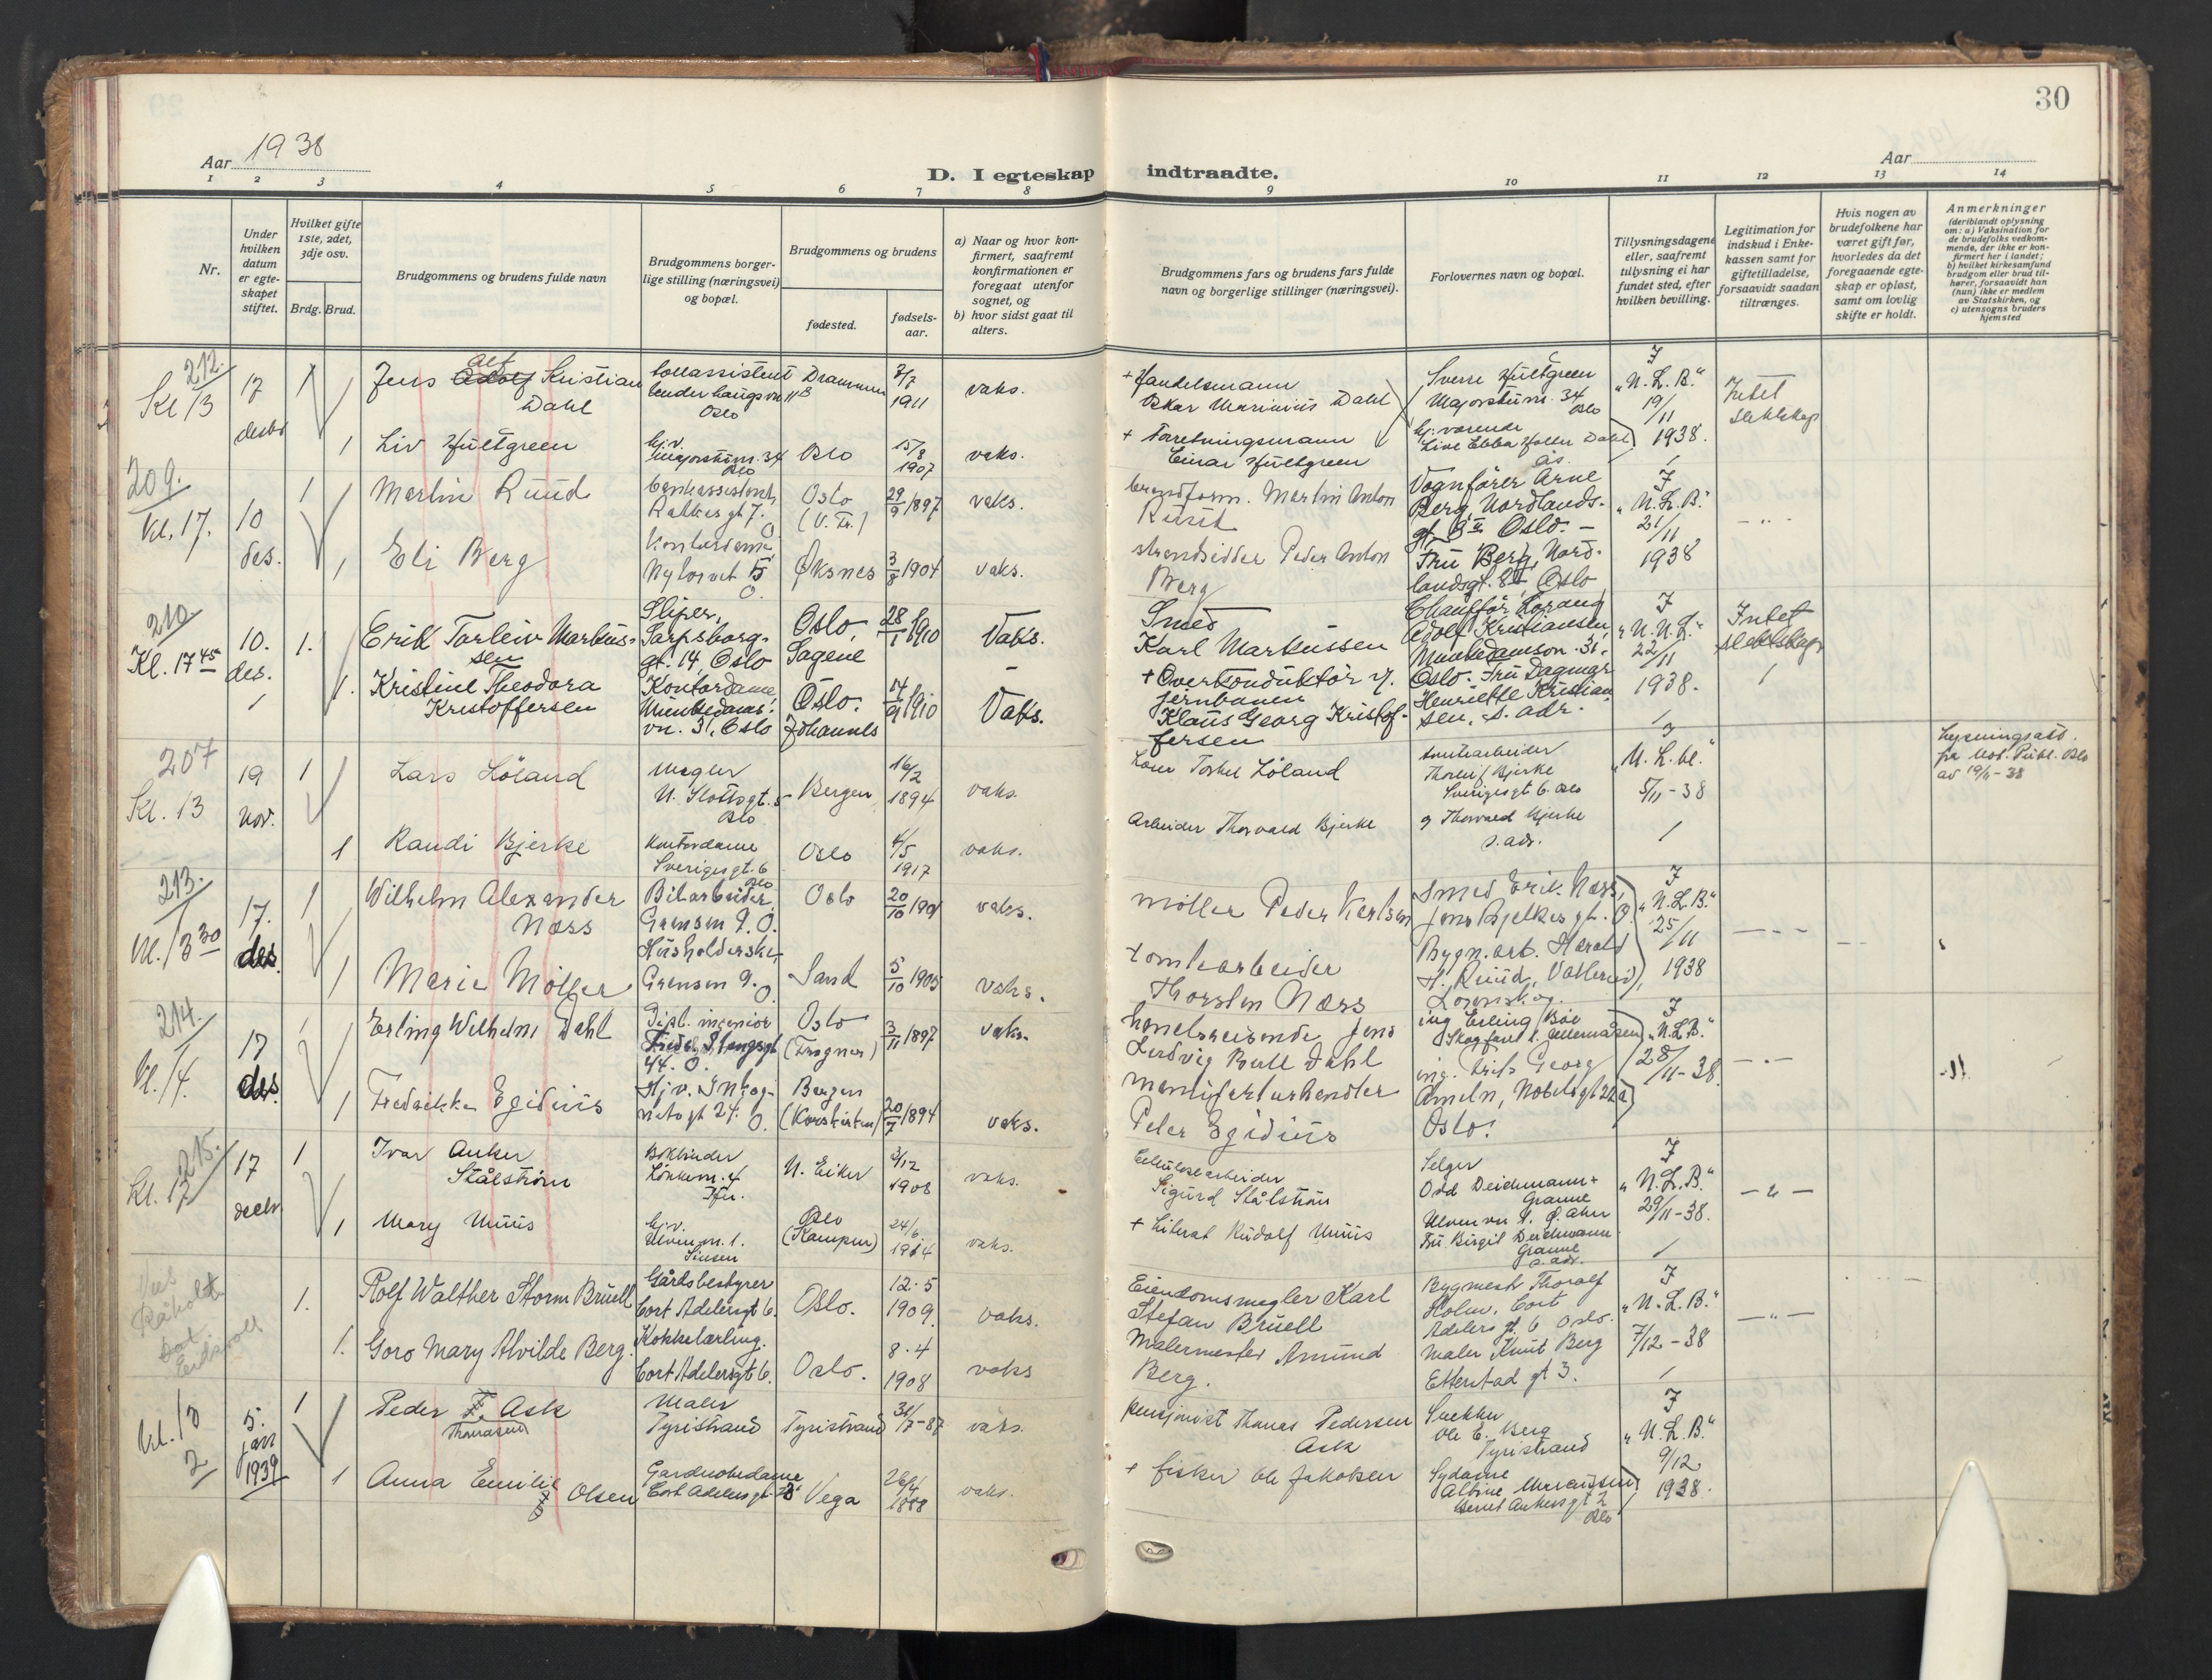 30
Aar 1938
Aar
D. I egteskap indtraadte.
1 2 3 4 5 6 7 8 9 10 11 12 13 14
Nr.
Under hvilken datum er egteskapet stiftet.
Hvilket gifte 1ste, 2det, 3dje osv.
Brdg. Brud.
Brudgommens og brudens fulde navn
Brudgommens borgerlige stilling (næringsvei) og bopæl.
Brudgommens og brudens
fødested.
fødselsaar.
a) Naar og hvor konfirmert, saafremt konfirmationen er foregaat utenfor sognet, og
b) hvor sidst gaat til alters.
Brudgommens fars og brudens fars fulde navn og borgerlige stillinger (næringsvei).
Forlovernes navn og bopæl.
Tillysningsdagene eller, saafremt tillysning ei har fundet sted, efter hvilken bevilling.
Legitimation for indskud i Enkekassen samt for giftetilladelse, forsaavidt saadan tiltrænges.
Hvis nogen av brudefolkene har været gift før, hvorledes da det foregaaende egteskap er opløst, samt om lovlig skifte er holdt.
Anmerkninger
(deriblandt oplysning om: a) Vaksination for de brudefolks vedkommende, der ikke er konfirmert her i landet; b) hvilket kirkesamfund brudgom eller brud tilhører, forsaavidt han (hun) ikke er medlem av Statskirken, og c) utensogns bruders hjemsted
212.
Kl 13
17 desbr
1
Jens Adolf Alf Kristian Dahl
Tollassistent
Oslo
Drammen
2/7 1911
vaks.
+ Handelsmann
Oskar Marinius Dahl
Sverre Hultgreen
Majorstuvn. 34 Oslo
I "N. L. B."
19/11 1938.
Intet slektskap
1
Liv Hultgreen
hj.v.
Majorstuvn. 34 Oslo
Oslo
15/8 1907
vaks.
+ Forretningsmann
Einar Hultgreen
hj.værende
Live Ebba Dahl
Ås.
209.
Kl. 17.
10 des.
1
Martin Ruud
Oslo
29/9 1897
vaks.
Martin Anton Ruud
Vognfører Arne Berg, Nordlandsgt. 8 II Oslo. -
I "N. L. B."
21/11 1938
- " -
1
Eli Berg
Kontordame
Nytorvet 5 O.
Øksnes
3/8 1904
vaks.
strandsidder Peder Anton Berg
Fru Berg, Nordlandsgt. 8 II Oslo
210
Kl. 17 45
10. des.
1.
Erik Torleiv Markussen
Sliper,
Sarpsborggt. 14, Oslo
Oslo, Sagene
28/1 1910
Vaks.
Smed
Karl Markussen
Chauffør
Adolf Kristiansen,
Munkedamsvn. 31. Oslo.
I "N. L."
22/11 1938.
Intet slektskap
1.
Kristine Theodora Kristoffersen
Kontordame,
Munkedamsvn. 31, Oslo
Oslo. Johannes
14/9 1910
Vaks.
+ Overkonduktør v. jernbanen
Klaus Georg Kristoffersen
Fru Dagmar Henriette Kristiansen, s. adr.
207
Kl. 13
19 nov.
1
Lars Löland
Megler
N. Slottsgt. 5 Oslo
Bergen
16/2 1894
vaks.
Torkel Löland
Thorleif Bjerke
Sverigesgt 6. Oslo
"N. L. bl."
5/11-38
Lysningsatt. fra Oslo av 19/11-38
1
Randi Bjerke
Kontordame
Sverigesgt. 6 Oslo
Oslo
4/5 1917
vaks.
Arbeider Thorvald Bjerke
og Thorvald Bjerke
s. adr.
213.
Kl. 13 30
17. des.
1
Wilhelm Alexander Næss
Bilarbeider,
Grensen 9. O.
Oslo
20/10 1901
vaks.
Møller Peder Karlsen
Smed Erik Næss,
Jens Bjelkes gt. O.
I "N. L. B."
25/11 1938
- " -
1
Marie Möller
Husholderske,
Grensen 9. O.
Sand
5/10 1905
vaks.
+ tomtearbeider
Thorsten Næss
Bygn.arb. Harald
H. Ruud,
Lørenskog.
214.
Kl. 14.
17 des.
1
Erling Wilhelm Dahl
Dipl. ingeniør
Fredr. Stangsgt 44. O.
Oslo (Frogner)
3/11 1897
vaks.
handelsreisende Jens Ludvig Bull Dahl
ing. Erling Böe
I "N. L. B."
28/11-38.
- " -
1
Fredrikke Egidius
Hj.v. Inkognitogt 24. O.
Bergen (Korskirken)
20/7 1894
vaks.
manufakturhandler
Peter Egidius
ing. Georg Ameln, Nobelsgt 22a
Oslo.
215.
Kl. 17
17 decbr.
1
Ivar Anker Stålström
Bokbinder
N. Eiker
3/12 1908
vaks.
Cellulosearbeider
Sigurd Stålström
Selger
Odd Deichmann
Ulvenvn 1. Ø. Aker
I "N. L. B."
29/11-38.
- " -
1
Mary Muus
hj.v.
Ulvenvn. 1. Sinsen
Oslo (Kampen)
24/6 1914
vaks.
+ Literat Rudolf Muus
Fru Birgit Deichmann
s. adr.
Ved Råholt Eidsvoll
1.
Rolf Walther Storm Bruell
Gårdsbestyrer
Cort Adelersgt 6.
Oslo.
12.5 1909
vaks.
Eiendomsmegler Karl Stefan Bruell
Bygmestr Thoralf Holm, Cort Adelers gt. 6 Oslo.
I "N. L. B."
7/12-38
- " -
1.
Goro Mary Alvilde Berg.
Kokkelærling.
Cort Adelersgt 6.
Oslo.
8.4 1908
vaks
Malermester Amund Berg.
Maler Knut Berg
Etterstad gt 3.
Kl. 13
2
5. jan 1939
1
Peder Ask
Thomassen
Maler
Tyristrand
Tyristrand
31/7-87
vaks.
Pensjonist Thomas Pedersen Ask
Snekker
Ole E. Berg
Tyristrand
I "N. L. B."
9/12 1938.
1
Anna Emilie Olsen
Garderobedame
Cort Adelersgt.
Vega
26/4 1888
vaks.
+ fisker Ole Jakobsen
Sydame
Albine
Bernt Ankersgt 2 Oslo